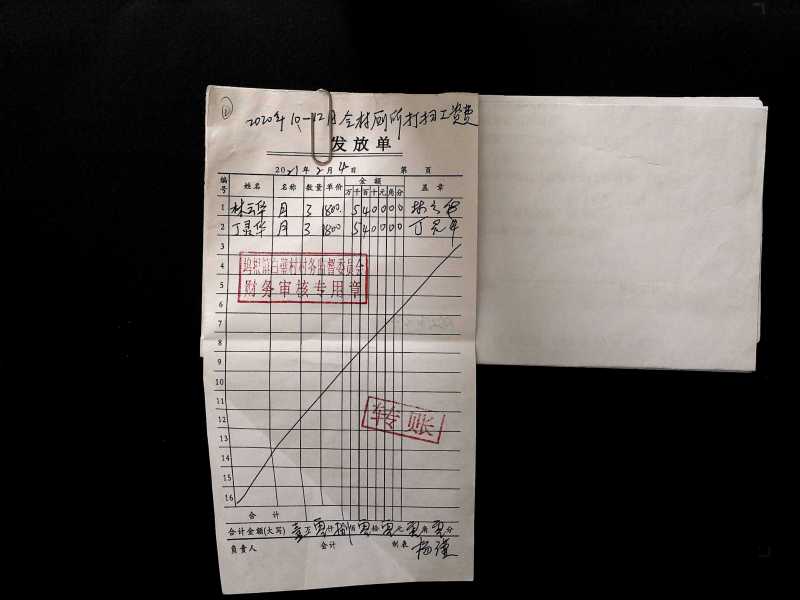 ①
2020年10-12月全村厕所打扫工资费
发放单
2021年2月4日 第 页
编号 姓名 名称 数量 单价 金额 盖章
万 千 百 十 元 角 分
1 林云华 月 3 1800. 5 4 0 0 0 0 林云华
2 丁灵华 月 3 1800 5 4 0 0 0 0
3
4
白璧村村务监督委员会
5
财务审核专用章
6
7
8
9
10
11
转账
12
13
14
15
16
合计
合计金额(大写) 壹万零仟捌佰零拾零元零角零分
负责人 会计 制表 杨瑾